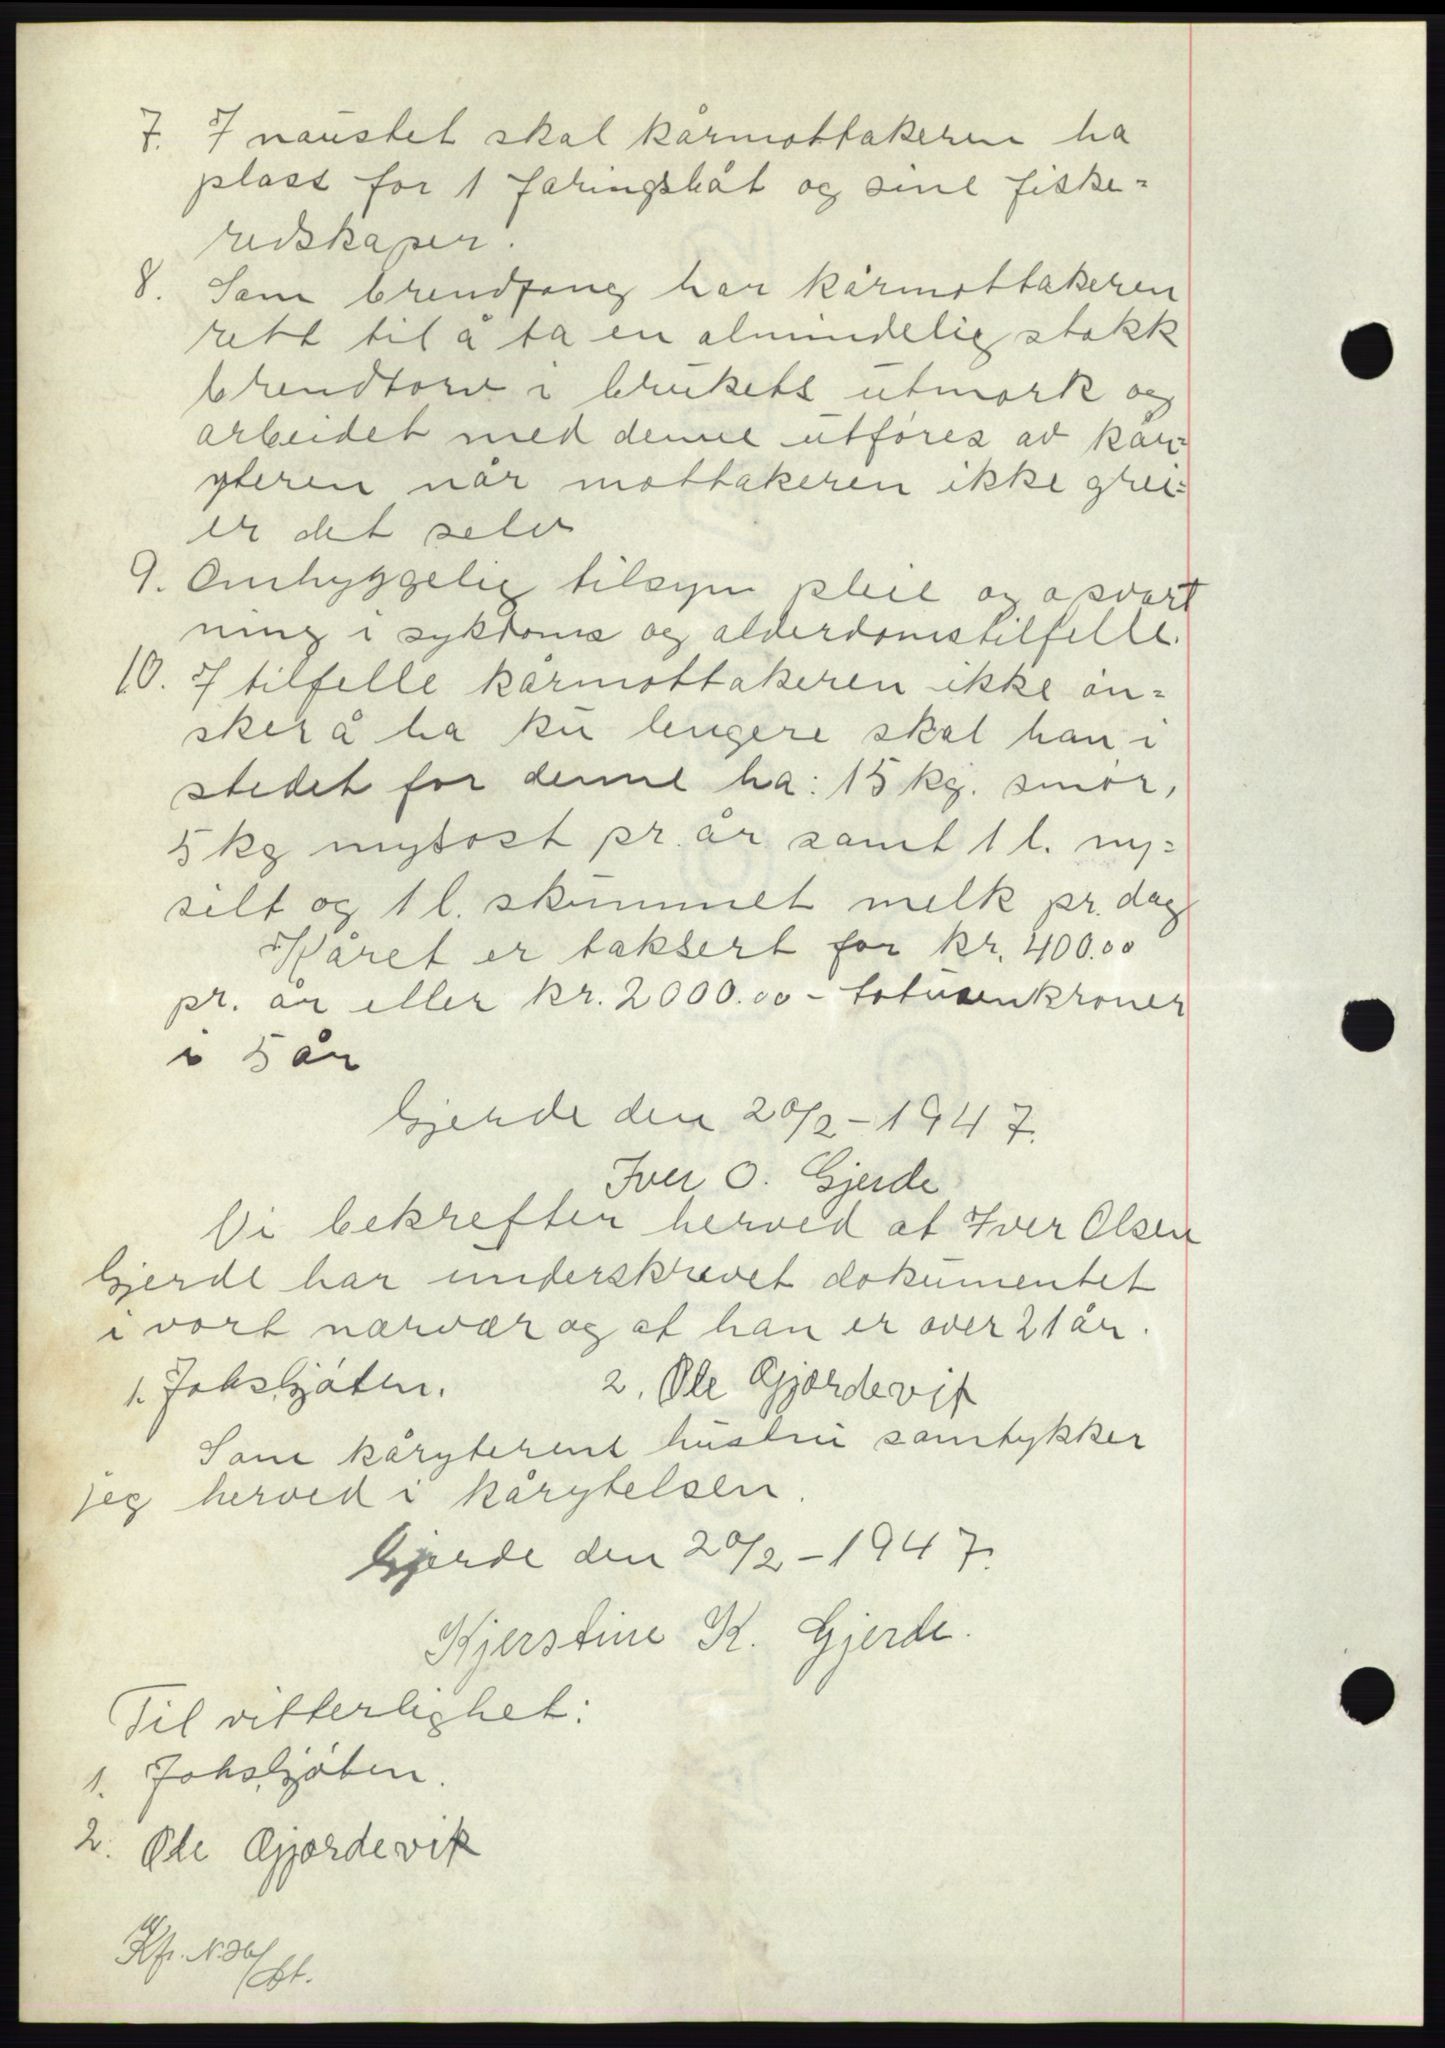 7. I naustet skal kårmottakeren ha
plass for 1 færingsbåt og sine fiske=
redskaper.
8. Som brendfang har kårmottakeren
rett til å ta en almindelig stakk
brendtorv i brukets utmark og
arbeidet med denne utføres av kår=
yteren når mottakeren ikke grei=
er det selv
9. Omhyggelig tilsyn pleie og opvart
ning i sykdoms og alderdomstilfelle.
10. I tilfelle kårmottakeren ikke øn=
sker å ha ku lengere skal han i
stedet for denne ha: 15 kg. smør,
5 kg mysost pr. år samt 1 l. ny=
silt og 1 l. skummet melk pr. dag
Kåret er taksert for kr. 400.00
pr. år eller kr. 2000.00 - totusenkroner
i 5 år
Gjerde den 20/2 - 1947.
Iver O. Gjerde
Vi bekrefter herved at Iver Olsen
Gjerde har underskrevet dokumentet
i vort nærvær og at han er over 21 år.
1. 2. Ole Gjørdevik
Som kåryterens hustru samtykker
jeg herved i kårytelsen.
Gjerde den 20/2 - 1947.
Kjerstine K. Gjerde.
Til vitterlighet:
1.
2. Ole Gjørdevik